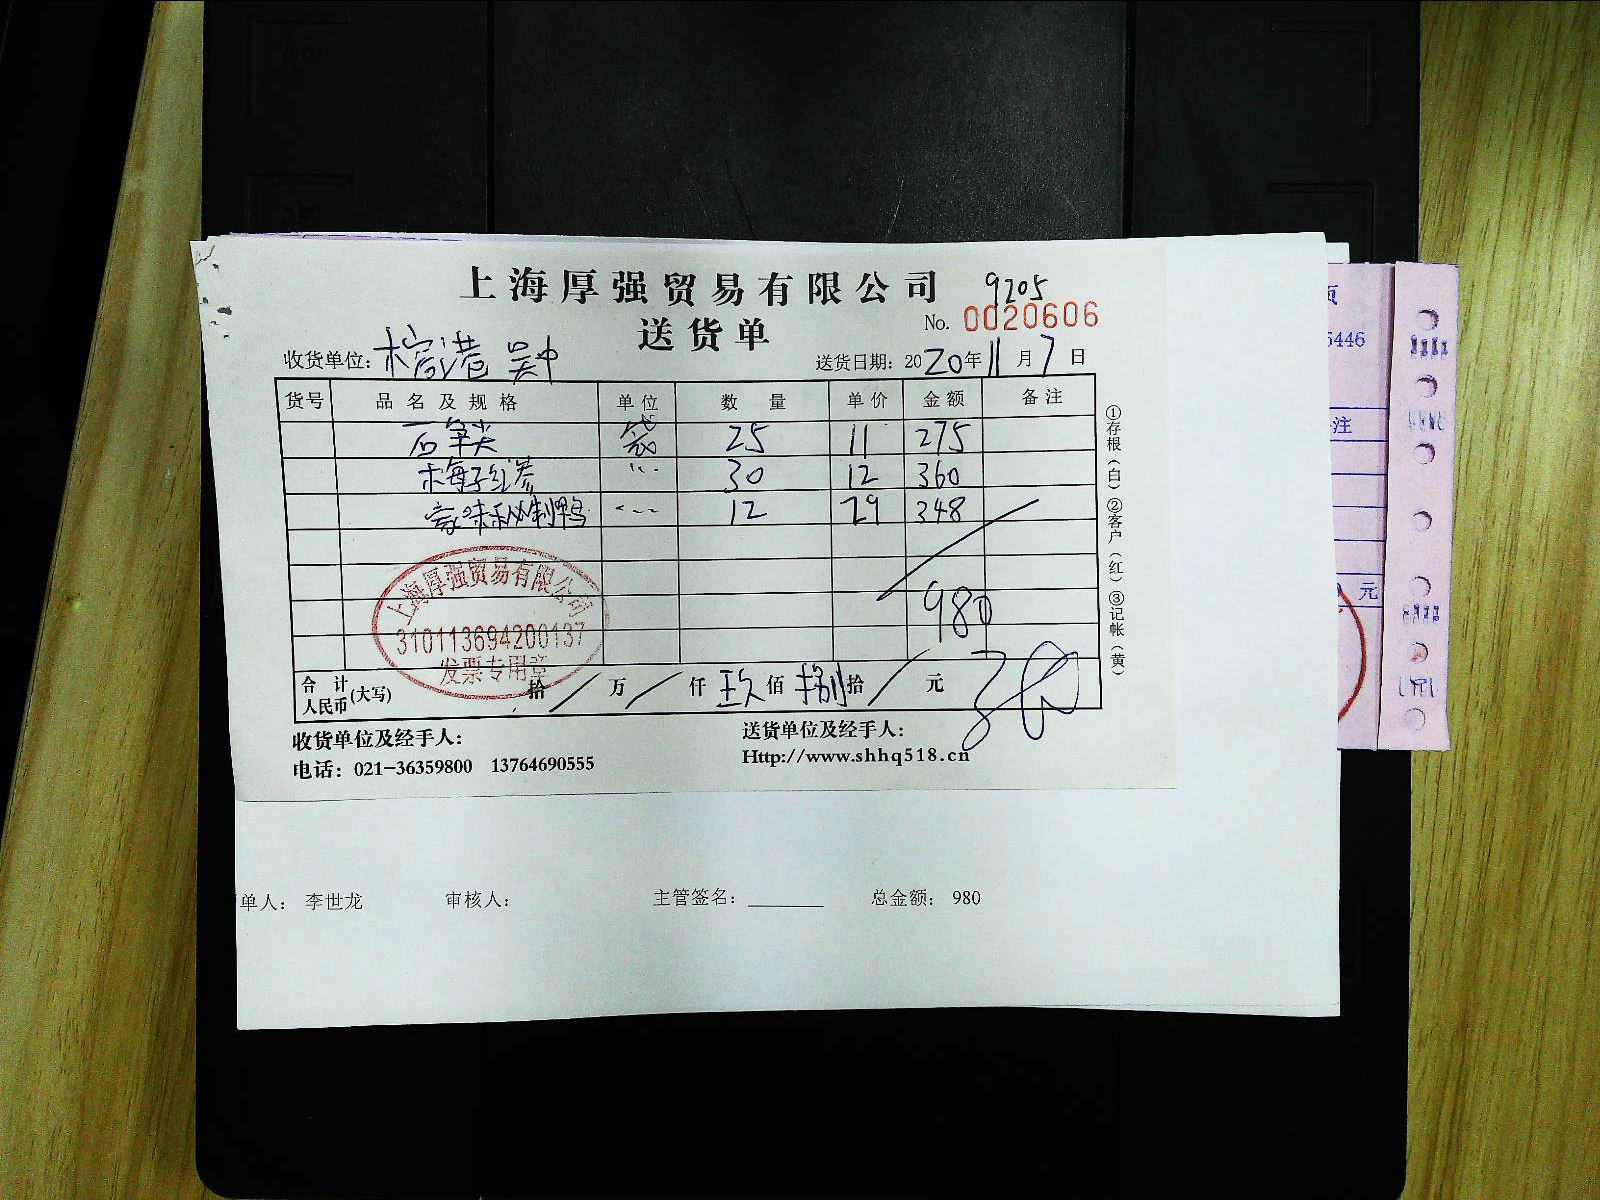 上海厚强贸易有限公司 9205
送货单 No. 0020606
收货单位: 港 吴中 送货日期: 2020年11月7日
货号 品名及规格 单位 数量 单价 金额 备注
石笋尖 袋 25 11 275
梅子红参 〃 30 12 360
豪味秘制鸭 〃 12 29 348
980
上海厚强贸易有限公司
310113694200137
发票专用章
合计人民币(大写) 拾/万/仟玖佰捌拾/元
收货单位及经手人: 送货单位及经手人:
电话: 021-36359800 13764690555 Http://www.shhq518.cn
①存根(白)②客户(红)③记帐(黄)
单人: 李世龙 审核人: 主管签名: 总金额: 980
5446
注
元